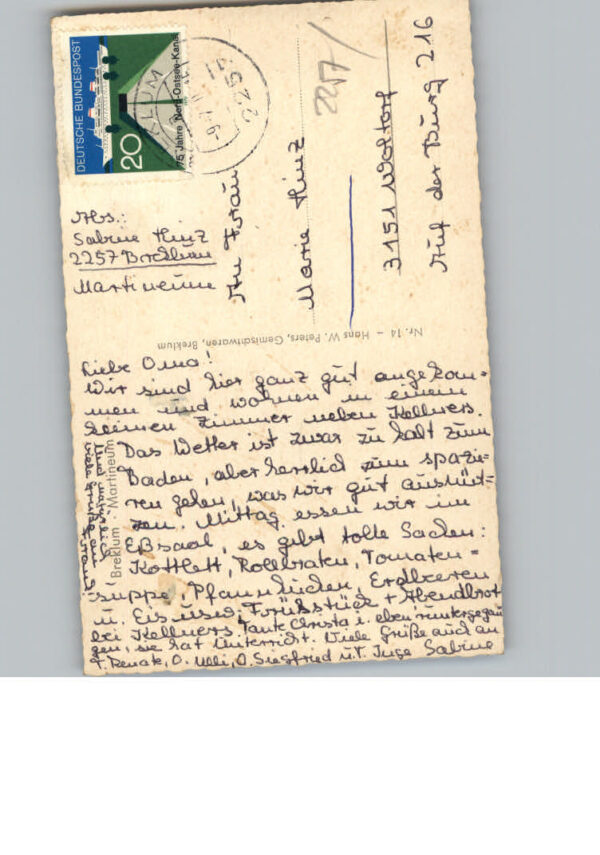 DEUTSCHE BUNDESPOST
20
75 Jahre Nord-Ostsee-Kanal
2257
Abs.:
Sabine Hinz
2257 Breklum
Martineum
An Frau
Marie Hinz
3151 Woltorf
Auf der Burg 216
Nr. 14 – Hans W. Peters, Gemischtwaren, Breklum
Breklum · Martineum
Liebe Oma!
Wir sind hier ganz gut angekom-
men und wohnen in einem
kleinen Zimmer neben Kellners.
Das Wetter ist zwar zu kalt zum
Baden, aber herrlich zum spazie-
ren gehen, was wir gut ausnüt=
zen. Mittag essen wir im
Eßsaal, es gibt tolle Sachen:
Kottlett, Rollbraten, Tomaten=
suppe, Pfannkuchen, Erdbeeren
u. Eis usw. Frühstück + Abendbrot
bei Kellners. Tante Christa i. eben 'runtergegan
gen, sie hat Unterricht. Viele Grüße auch an
T. Renate, O. Ulli, O. Siegfried u. T. Inge Sabine
Und natürlich
viele Grüße an